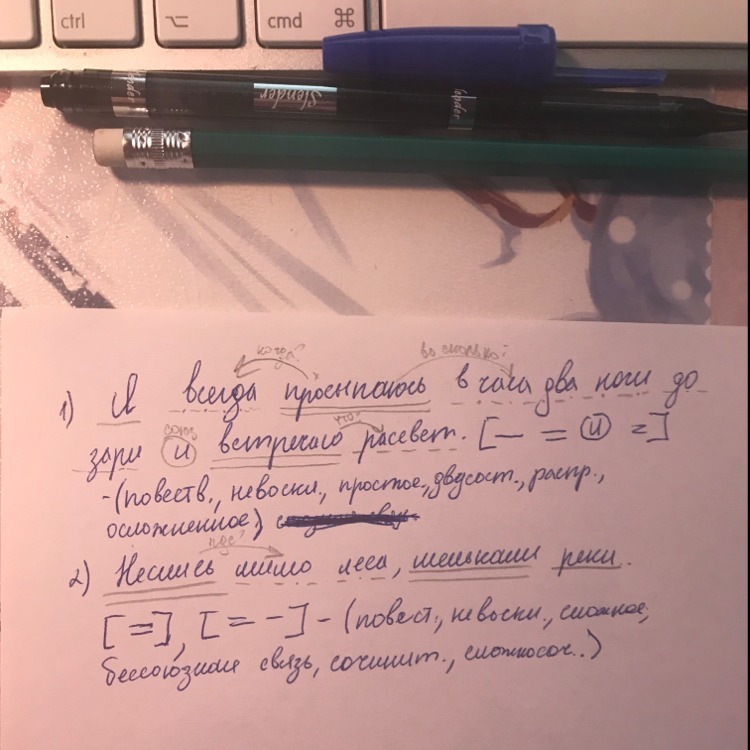 ctrl
⌥
cmd ⌘
Slender
когда? во сколько?
1) Я всегда просыпаюсь в часа два ночи до
союз что?
зари и встречаю рассвет. [— = и =]
- (повеств., невоскл., простое, двусост., распр.,
осложненное)
где?
2) Неслись мимо леса, мелькали реки.
[=], [= -] - (повест., невоскл., сложное,
бессоюзная связь, сочинит., сложносоч..)